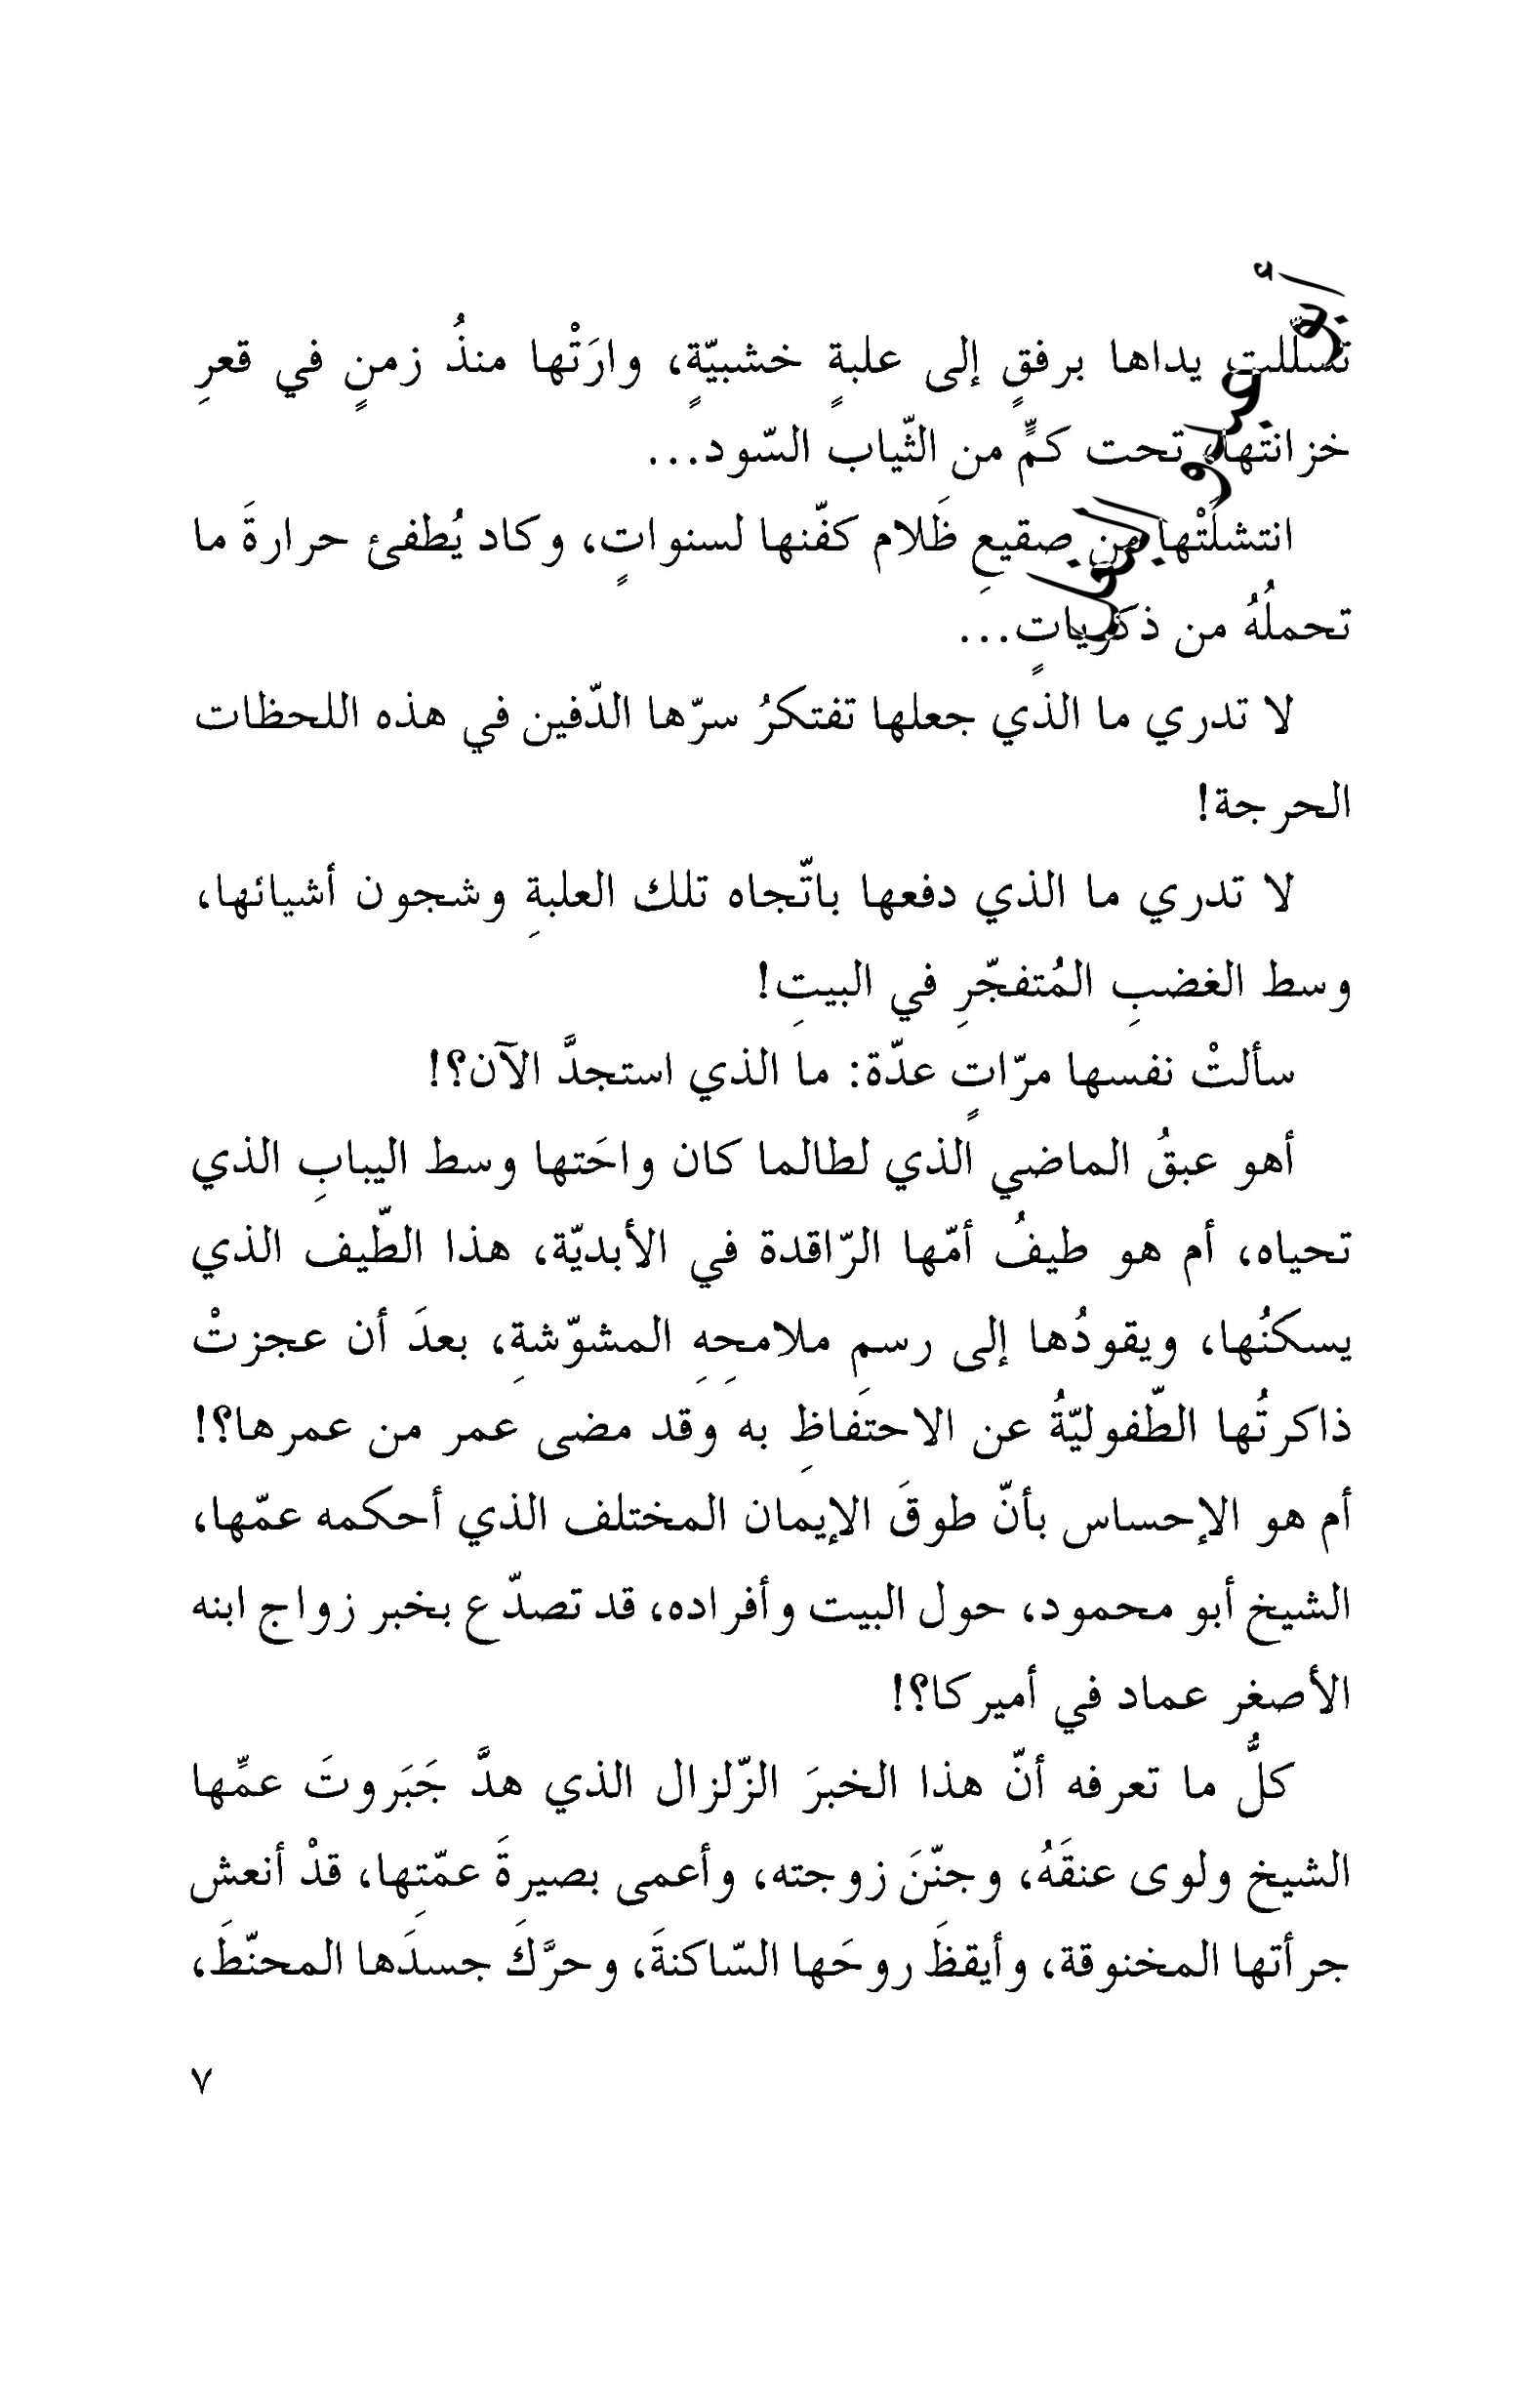 تسلّلت يداها برفقٍ إلى علبةٍ خشبيّةٍ، وارَتْها منذُ زمنٍ في قعرِ
خزانتها، تحت كمٍّ من الثّياب السّود...
انتشلَتْها من صقيعِ ظَلام كفّنها لسنواتٍ، وكاد يُطفئ حرارةَ ما
تحملُهُ من ذكرياتٍ...
لا تدري ما الذي جعلها تفتكرُ سرّها الدّفين في هذه اللحظات
الحرجة!
لا تدري ما الذي دفعها باتّجاه تلك العلبةِ وشجون أشيائها،
وسط الغضبِ المُتفجّرِ في البيتِ!
سألتْ نفسها مرّاتٍ عدّة: ما الذي استجدَّ الآن؟!
أهو عبقُ الماضي الذي لطالما كان واحَتها وسط اليبابِ الذي
تحياه، أم هو طيفُ أمّها الرّاقدة في الأبديّة، هذا الطّيف الذي
يسكنُها، ويقودُها إلى رسمِ ملامحِهِ المشوّشةِ، بعدَ أن عجزتْ
ذاكرتُها الطّفوليّةُ عن الاحتَفاظِ به وقد مضى عمر من عمرها؟!
أم هو الإحساس بأنّ طوقَ الإيمان المختلف الذي أحكمه عمّها،
الشيخ أبو محمود، حول البيت وأفراده، قد تصدّع بخبر زواج ابنه
الأصغر عماد في أميركا؟!
كلُّ ما تعرفه أنّ هذا الخبرَ الزّلزال الذي هدَّ جَبَروتَ عمِّها
الشيخ ولوى عنقَهُ، وجنّنَ زوجته، وأعمى بصيرةَ عمّتِها، قدْ أنعش
جرأتها المخنوقة، وأيقظَ روحَها السّاكنةَ، وحرَّكَ جسدَها المحنّطَ،
٧